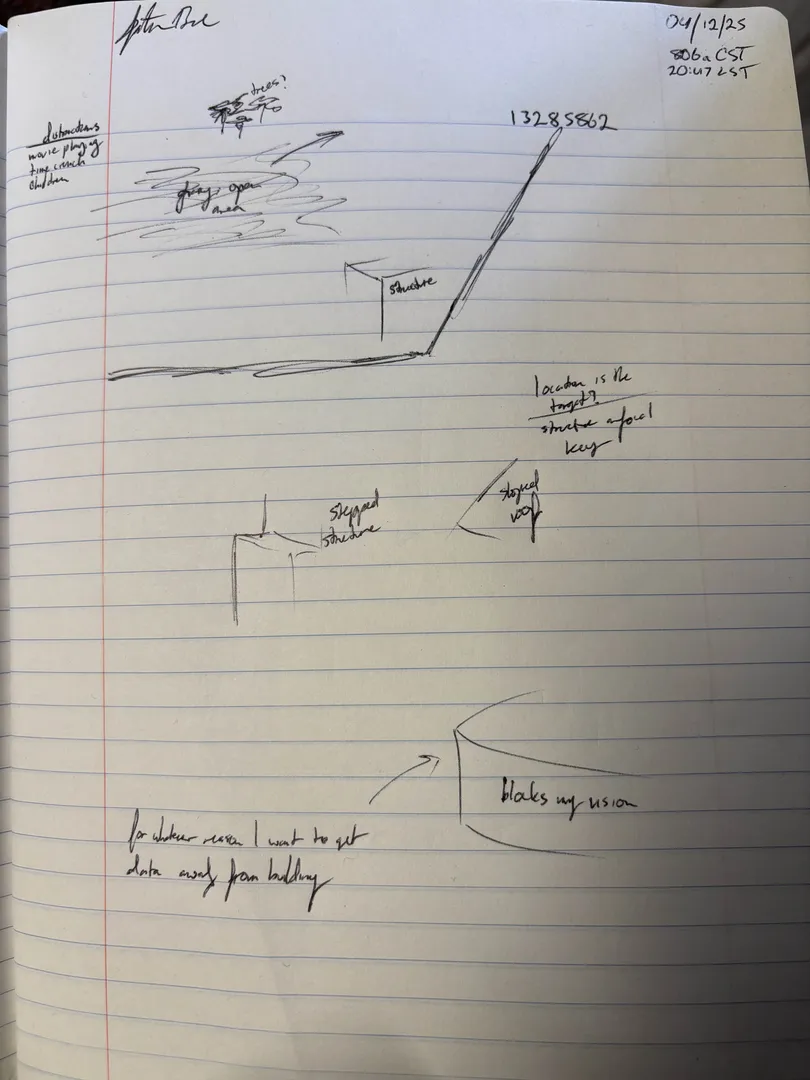 04/12/25
806a CST
20:47 LST
trees?
13285862
distractions
movie playing
time crunch
children
grays open
area
structure
location is the
target?
structure
key
stepped
structure
sloped
roof
blocks my vision
for whatever reason I want to get
data away from building